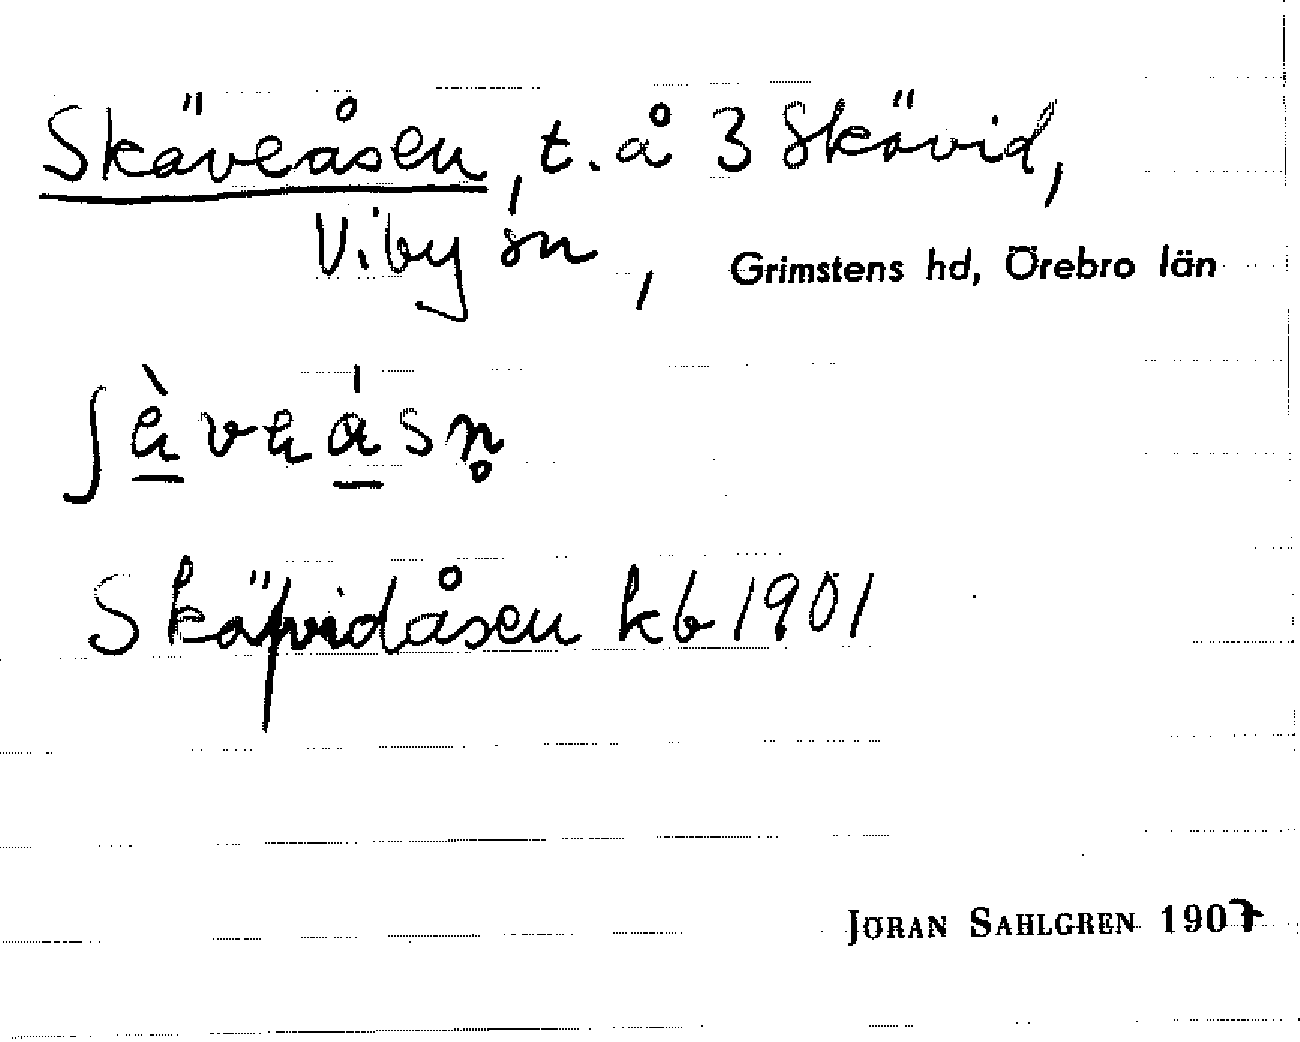 Skäveåsen, t. å 3 Skävid,
Viby sn, Grimstens hd, Örebro län
Skävidåsen kb 1901
JÖRAN SAHLGREN 1907